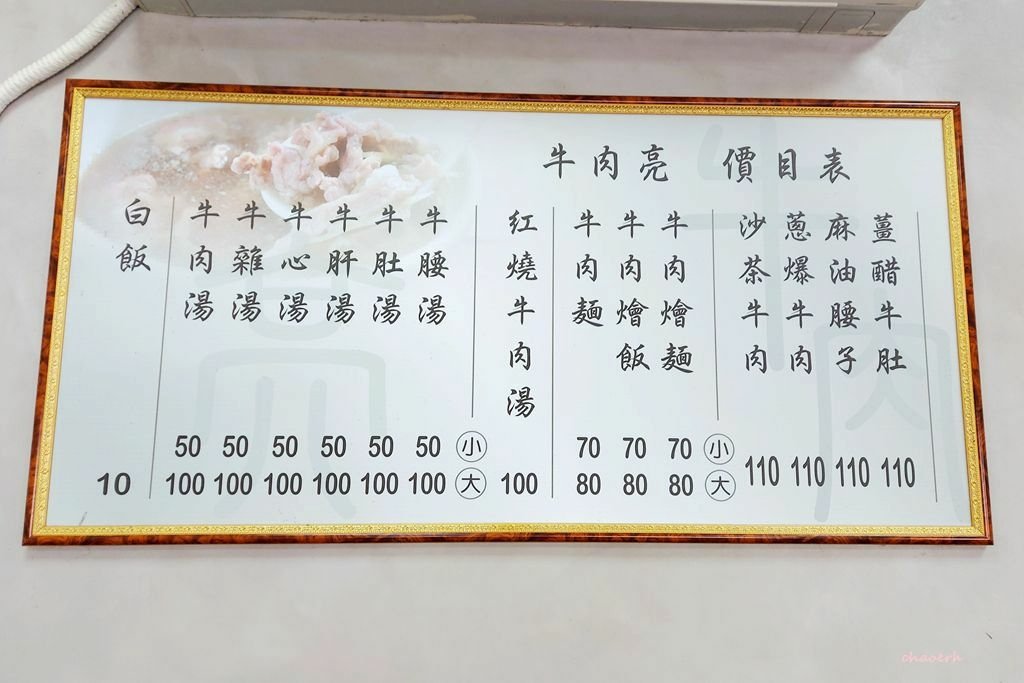 牛肉亮 價目表
薑醋牛肚
麻油腰子
蔥爆牛肉
沙茶牛肉
牛肉燴麵
牛肉燴飯
牛肉麵
紅燒牛肉湯
牛腰湯
牛肚湯
牛肝湯
牛心湯
牛雜湯
牛肉湯
白飯
50 50 50 50 50 50 小
70 70 70 小
10
100 100 100 100 100 100 大
100
80 80 80 大
110 110 110 110
chaoerh